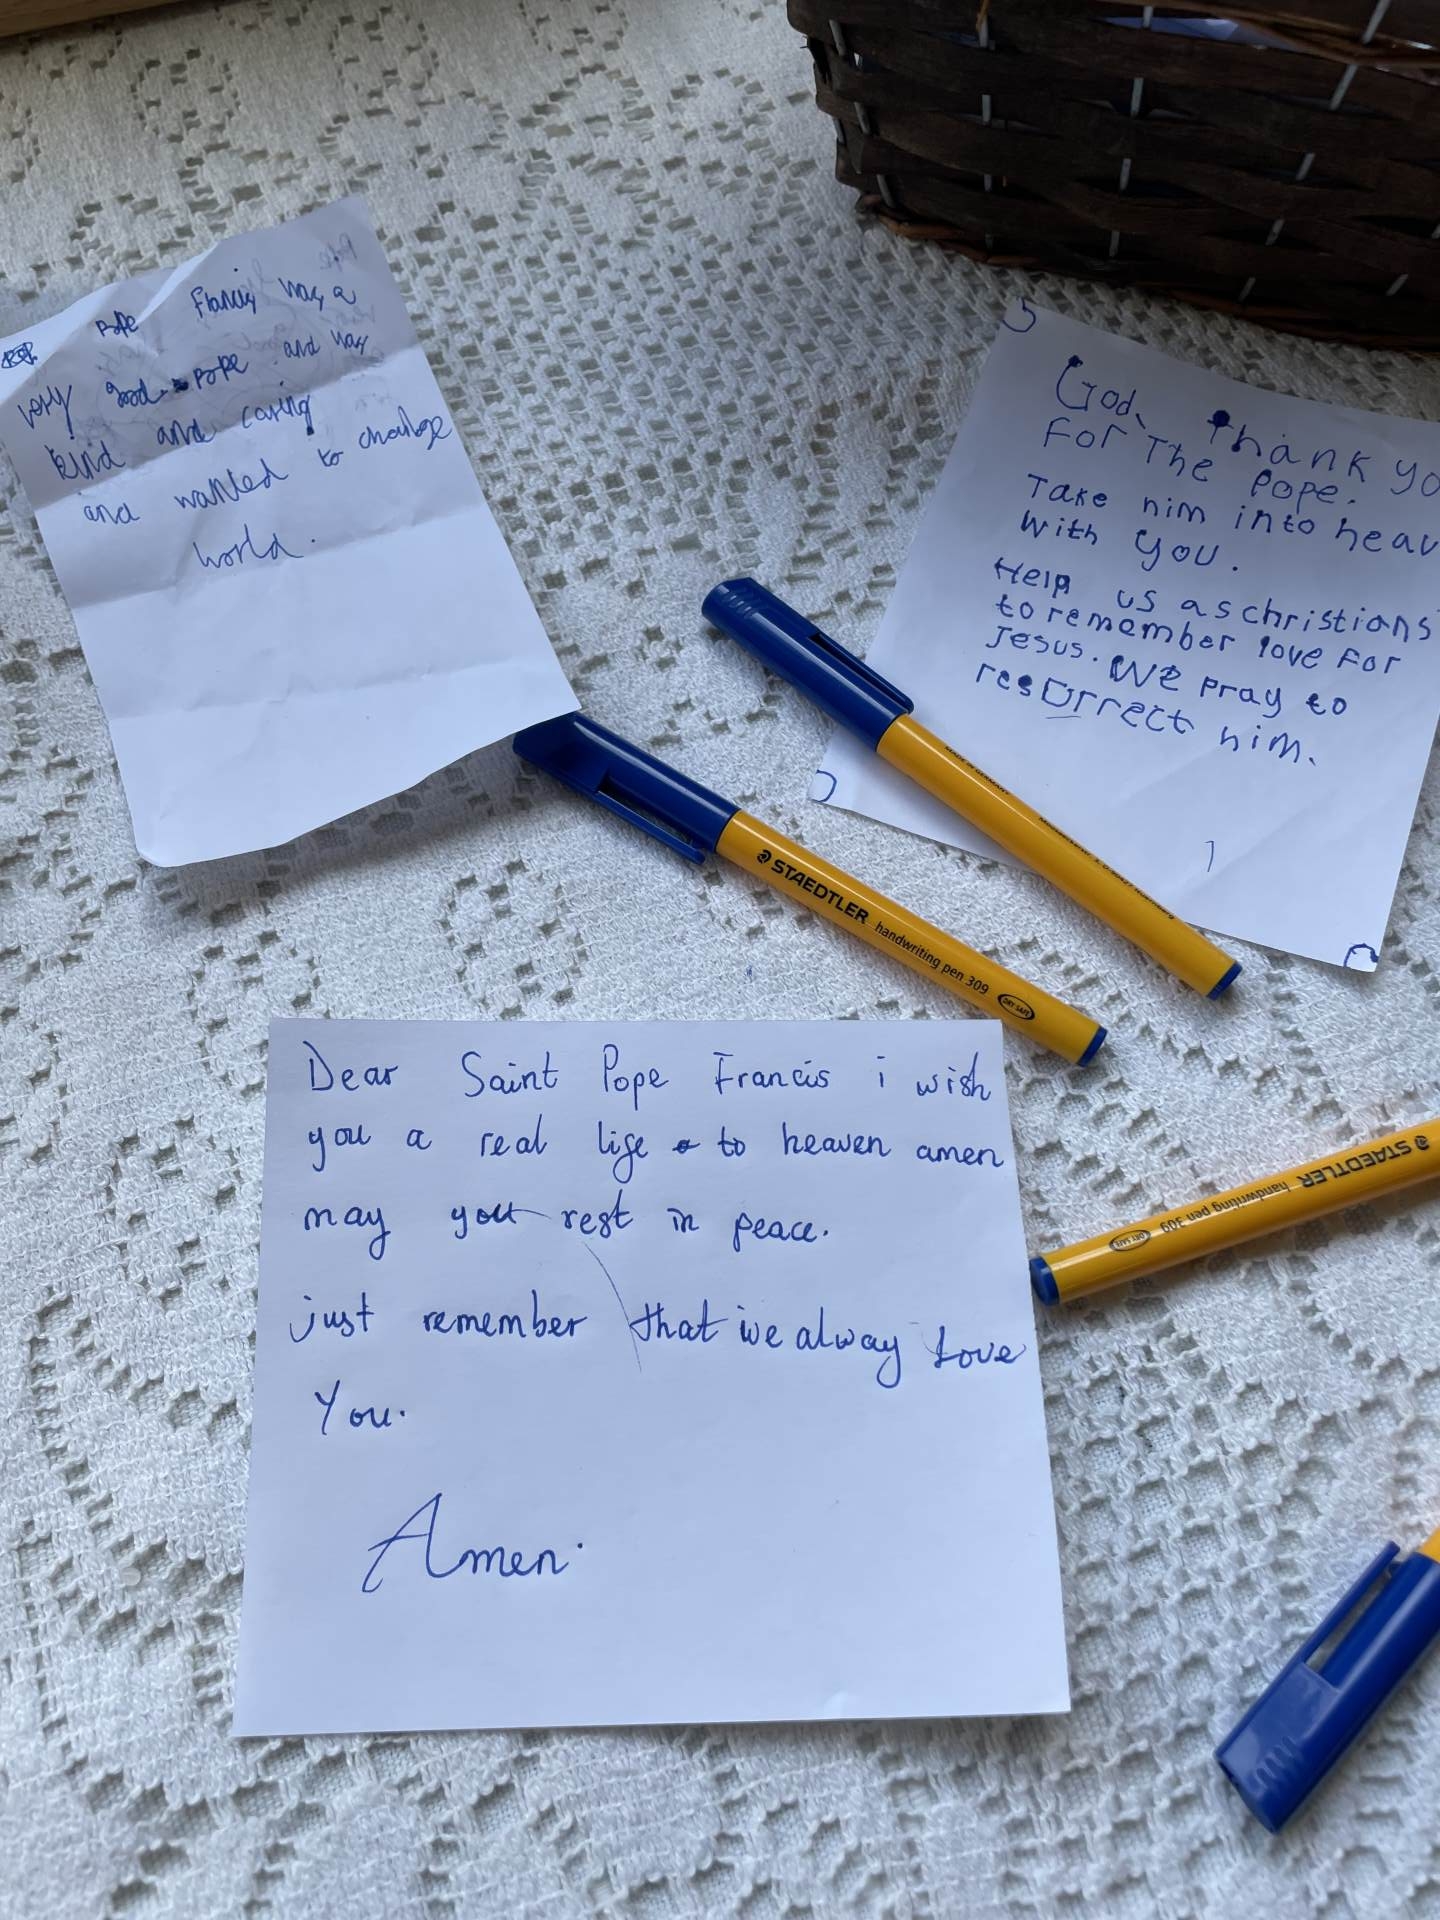 Pope Francis was a
very good pope and was
kind and caring
and wanted to change
world.
God, Thank yo
For The Pope.
Take him into heav
With you.
Help us as christians
to remember love for
Jesus. We pray to
resurrect him.
MADE IN GERMANY
STAEDTLER handwriting pen 309 DRY SAFE
Dear Saint Pope Francis i wish
you a real life to heaven amen
may you rest in peace.
just remember that we alway Love
You.
Amen.
STAEDTLER handwriting pen 309 DRY SAFE